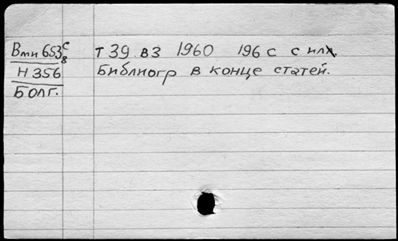 Вми 653 с/8 т 39 вз 1960 196 с с илл.
Н 356 Библиогр в конце статей.
Болг.